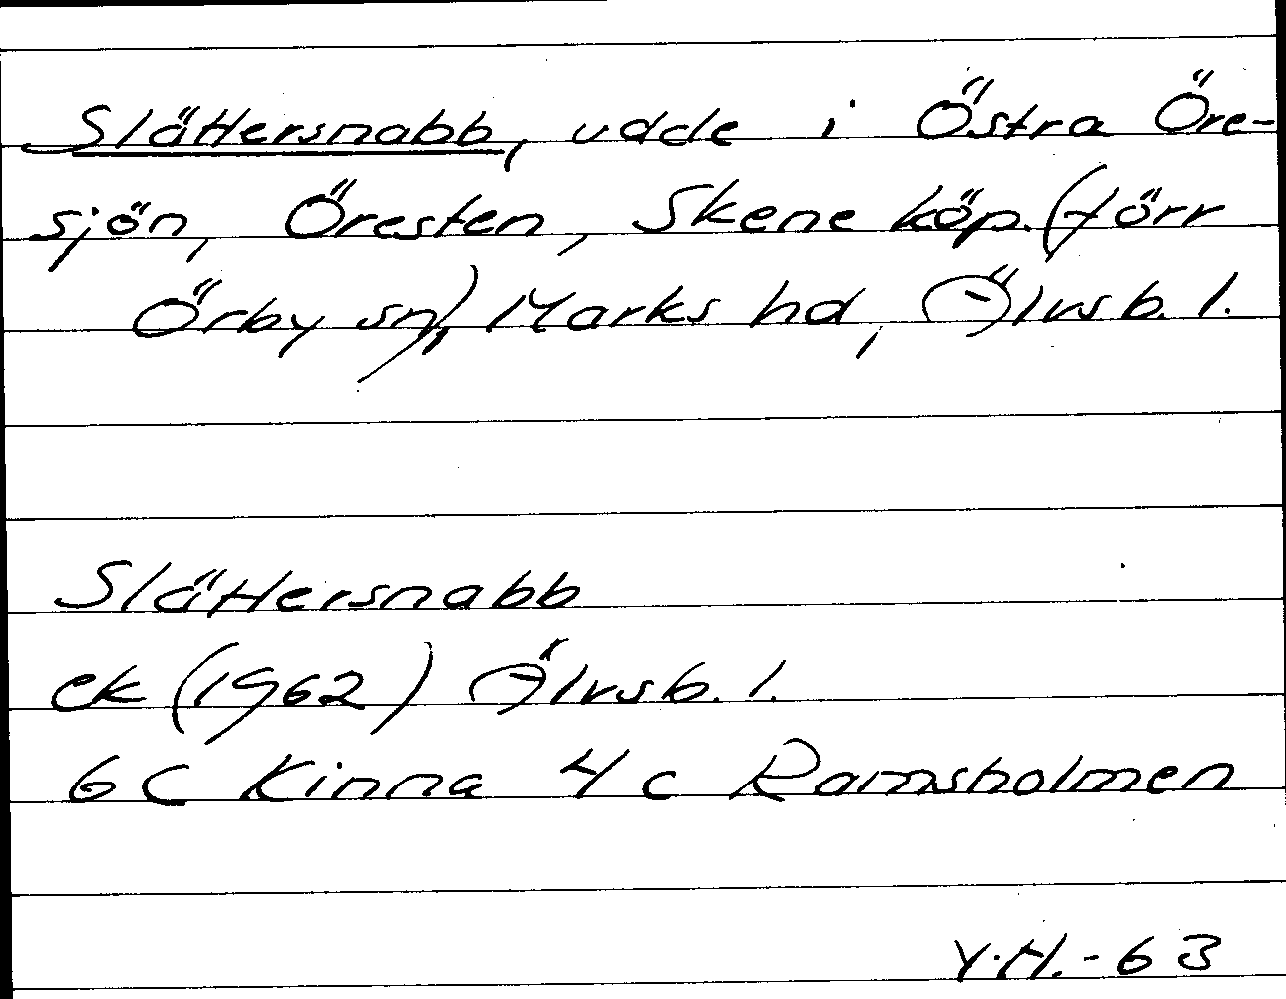 Slättersnabb, udde i Östra Öre-
sjön, Öresten, Skene köp. (förr
Örby sn), Marks hd, Älvsb. l.
Slättersnabb
ek (1962) Älvsb. l.
6 C Kinna 4 c Ramsholmen
Y.H.-63